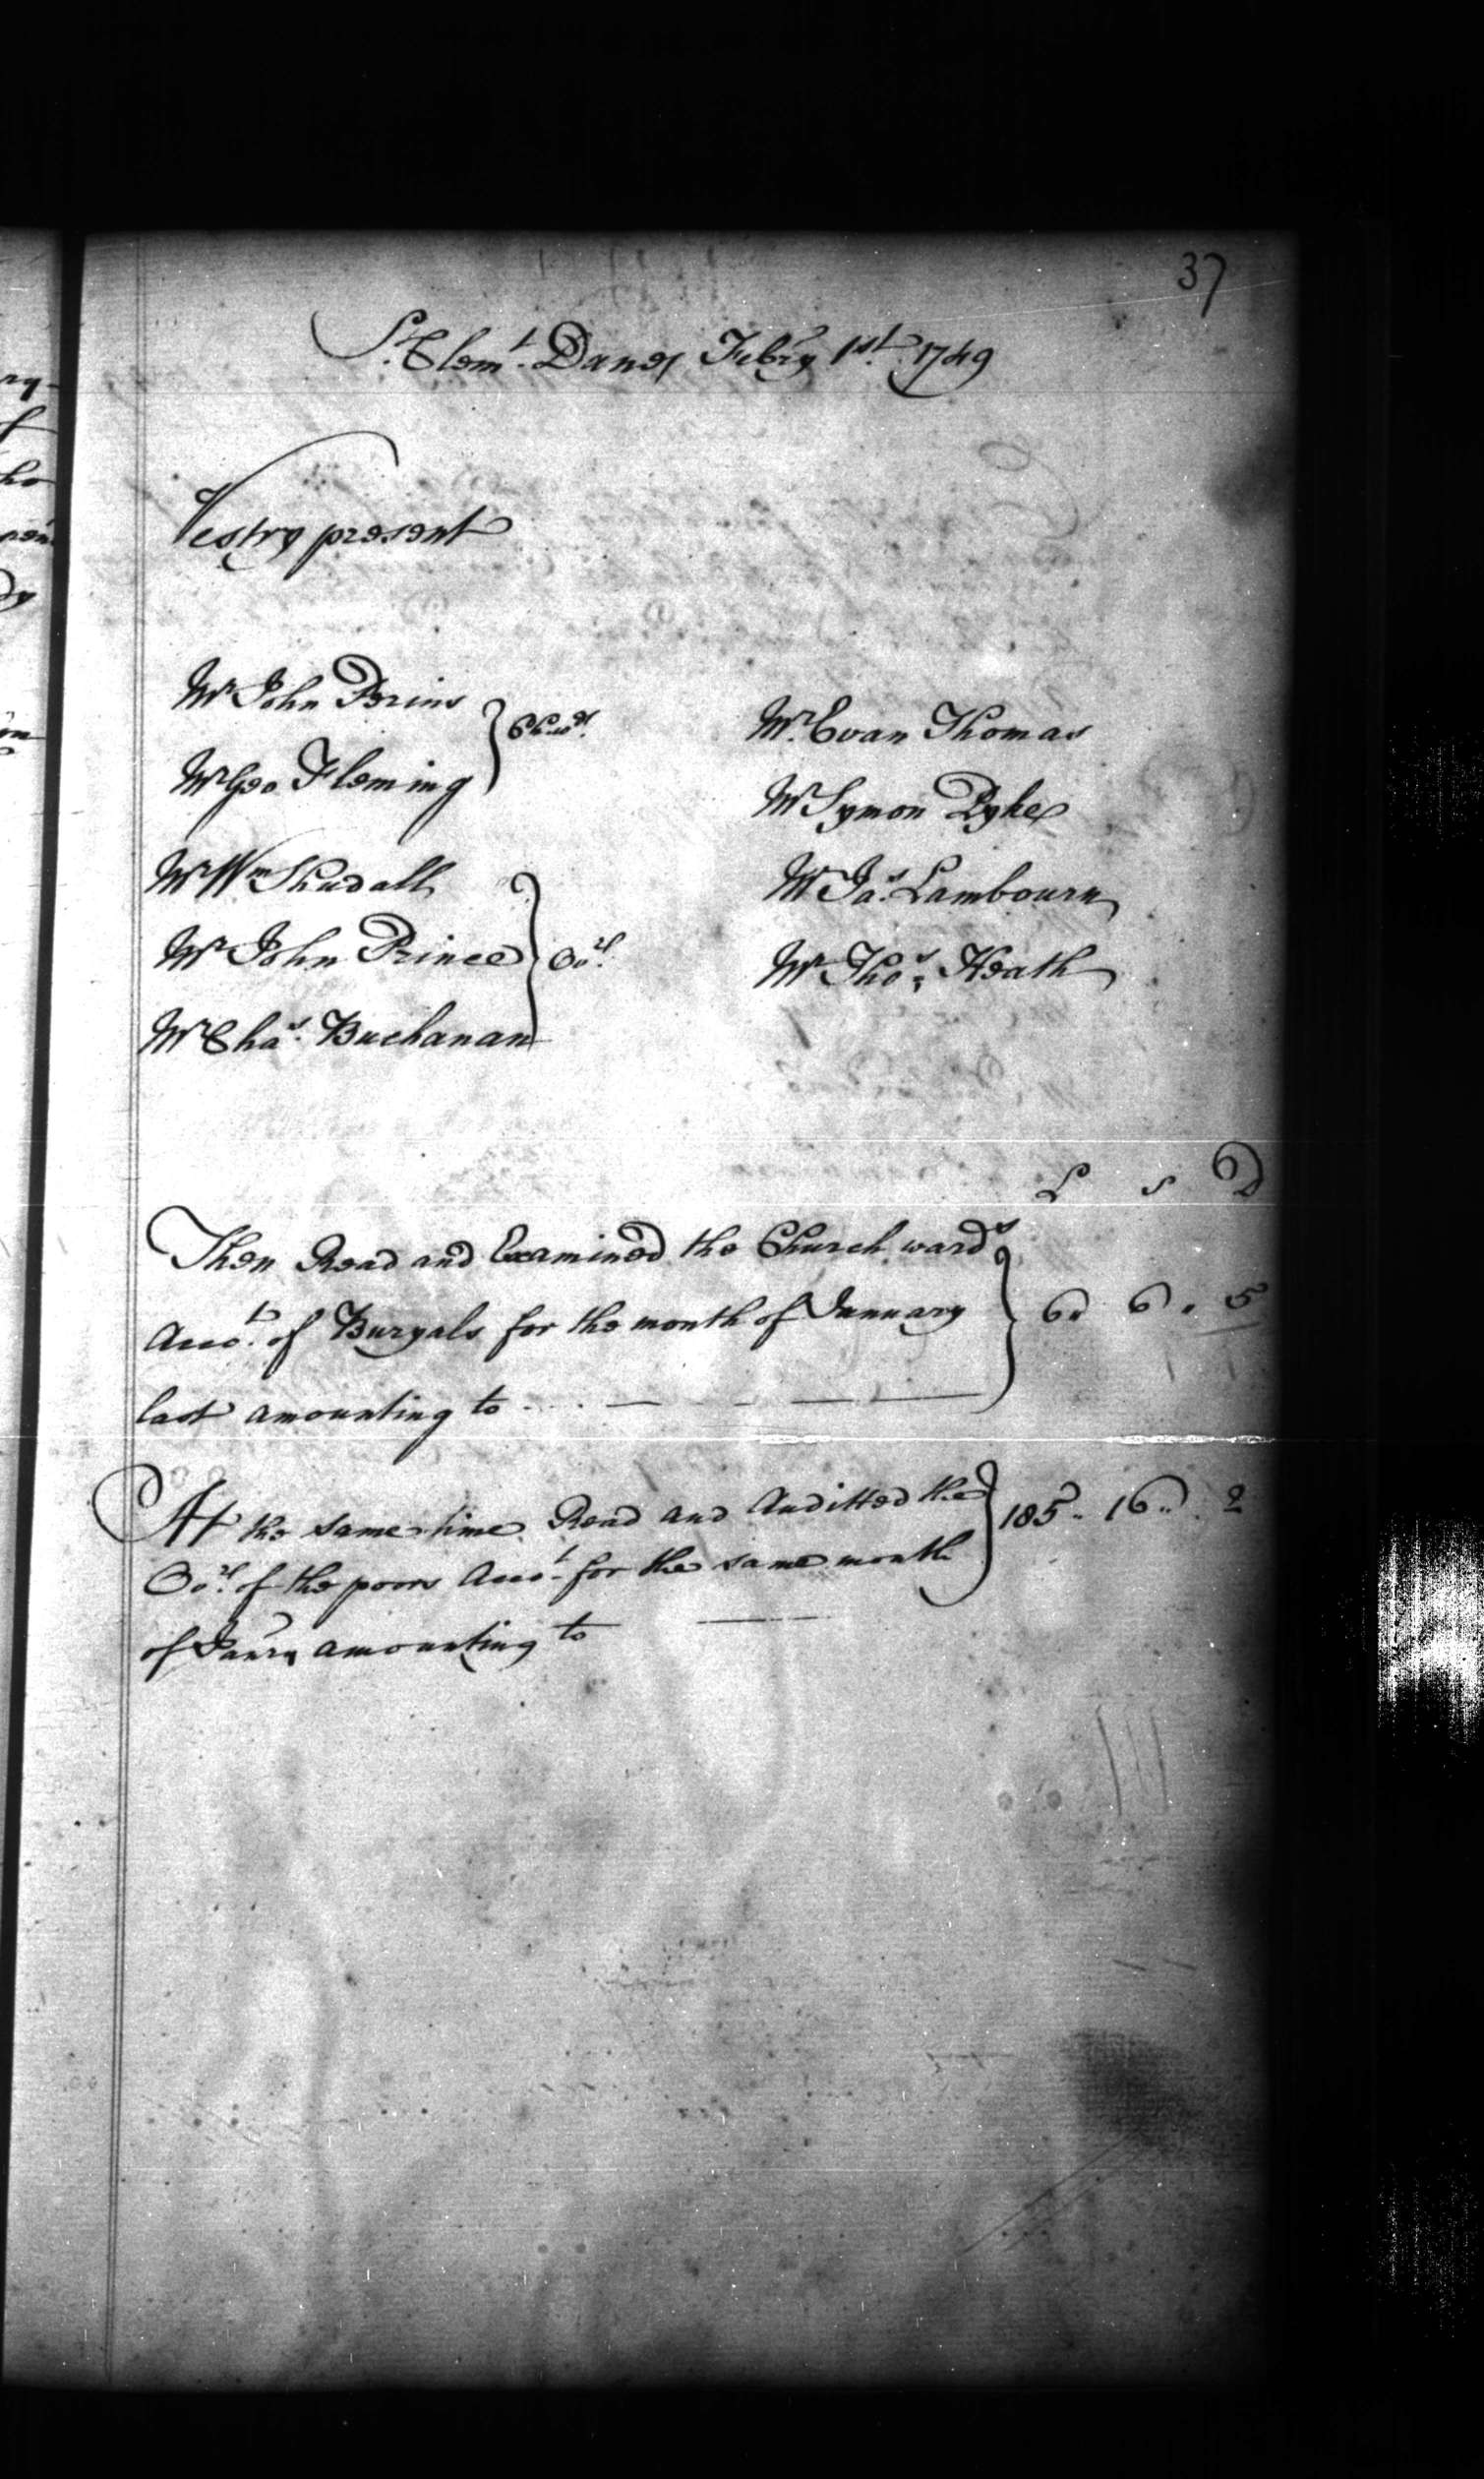 37
St. Clemt. Danes Febry 1st. 1749
Vestry present
Mr John Prins
Mr Geo Fleming
Chwds.
Mr Wm Shudall
Mr John Prince
Mr Chas. Buchanan
Ovrs.
Mr. Evan Thomas
Mr Symon Dyke
Mr Jas. Lambourn
Mr Thos. Heath
L s D
Then Read and Examined the Church wards
Acco.t of Buryals for the month of January 6 .. 6 .. 5
last amounting to
At the same time Read and Auditted the 185 .. 16 .. 2
Ovrs. of the poors Acco.t for the same month
of Janry amounting to